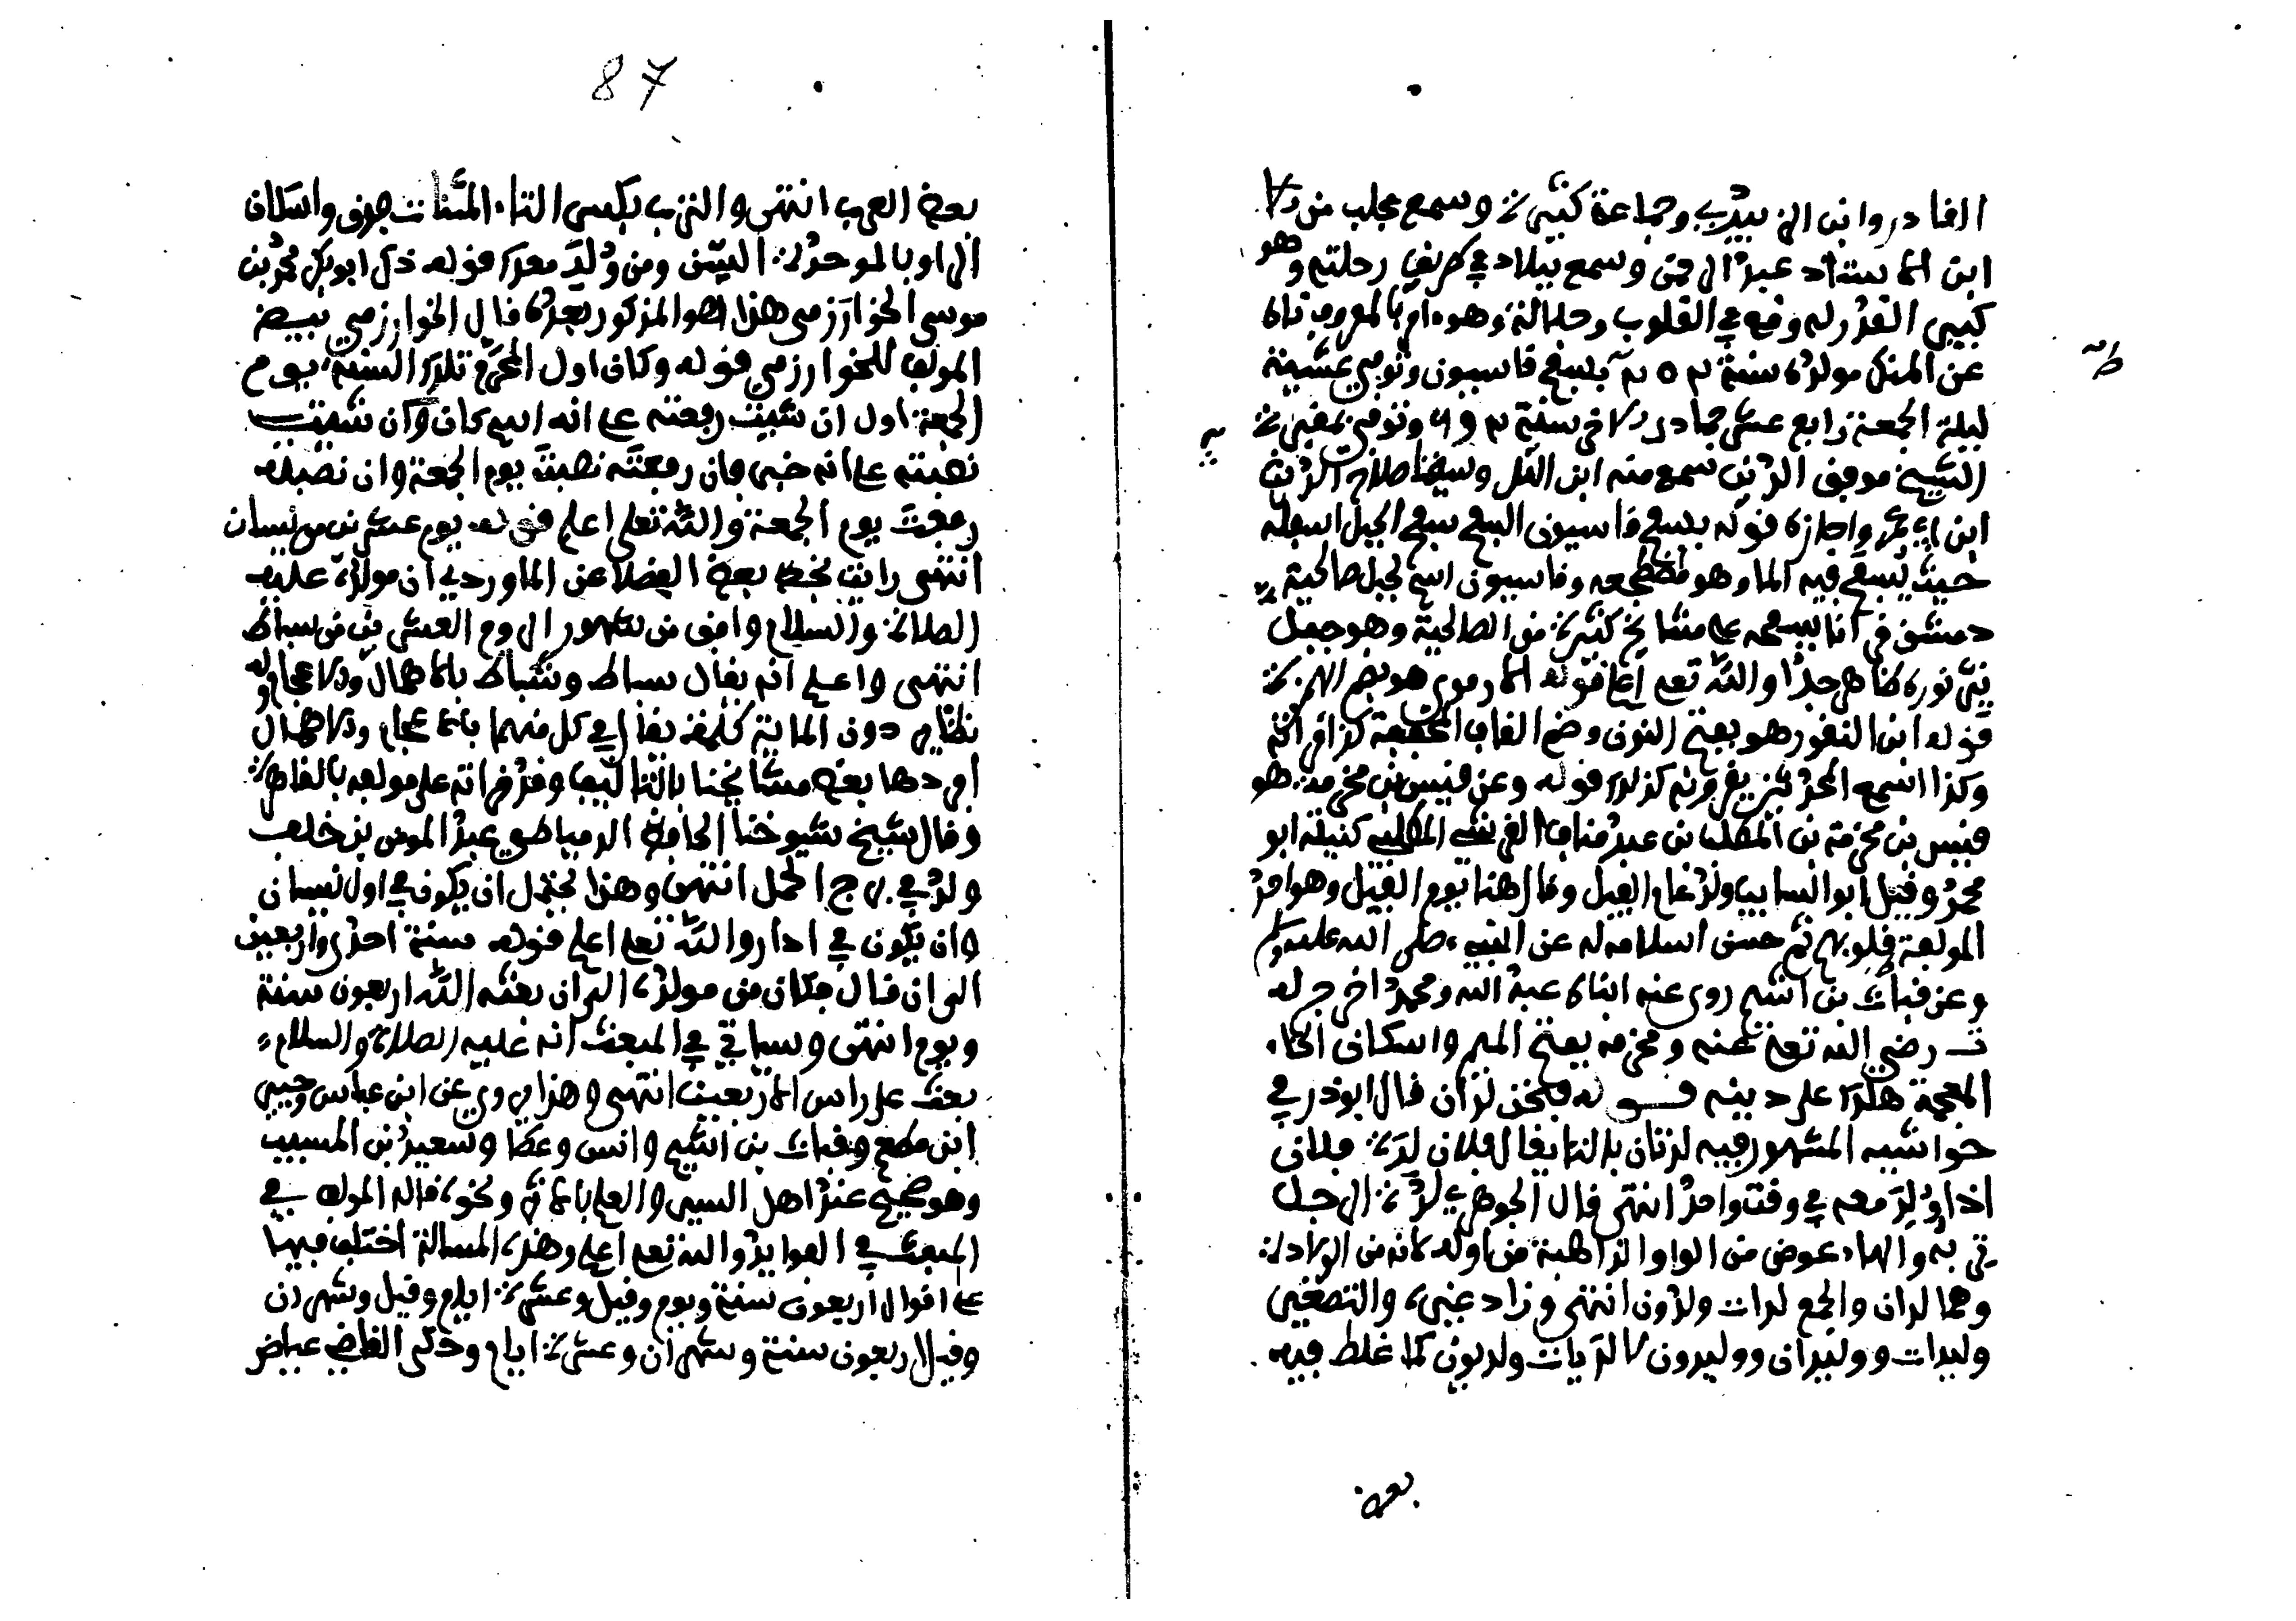 القادر وابن الزبيدي وجماعة كثيرة وسمع بحلب من الا
ابن الاستاد عبد الرحمن وسمع ببلاد في طريق رحلته وهو
كبير القدر له وقع في القلوب وجلالة وهو امر بالمعروف ناه
عن المنكر مولده سنة بسفح قاسيون وتوفي عشية
ليلة الجمعة رابع عشر جمادى الا سنة وتوفي بمقبرة
الشيخ موفق الدين سمع منه ابن وشيخنا صلاح الدين
ابن ابي عمر واجازه قوله بسفح قاسيون السفح سفح الجبل اسفله
حيث يسفح فيه الما وهو مضطجعه وقاسيون اسم لجبل صالحية
دمشق قرانا بسفحه على مشايخ كثيرة من الصالحية وهو جبل
نير نوره ظاهر جدا والله تعلى اعلم قوله الارموي هو بضم الهمزة
قوله ابن النقور هو بفتح النون وضم القاف المخففة كذا
وكذا اسمع المحدثين يقرونه كذلك قوله وعن قيس بن مخرمة هو
قيس بن مخرمة بن المطلب بن عبد مناف القرشي المطلبي كنيته ابو
محمد وقيل ابو السايب ولد عام الفيل وقال هنا يوم الفيل وهو احد
المولفة قلوبهم ثم حسن اسلامه له عن النبي صلى الله عليه وسلم
وعن قباث بن اشيم روى عنه ابناه عبد الله ومحمد اخرج له
ت رضي الله تعلى عنه ومخرمة بفتح الميم واسكان الخاء
المعجمة هلك على دينه قوله فنحن لدان قال ابو ذر في
حواشيه المشهور فيه لدتان بالتا يقال فلان لدة فلان
اذا ولد معه في وقت واحد انتهى قال الجوهري لدة الرجل
تربه والهاء عوض من الواو الذاهبة من اوله لانه من الولادة
وهما لدان والجمع لدات ولدون انتهى وزاد غيره والتصغير
وليدات ووليدان ووليدون لا لديات ولديون كما غلط فيه
بعض
87
بعض العرب انتهى والترب بكسر التاء المثناة فوق واسكان
الراو بالموحدة السن ومن ولد معك قوله ذكر ابو بكر محمد بن
موسى الخوارزمي هذا هو المذكور بعده قال الخوارزمي بيض
المولف للخوارزمي قوله وكان اول المحرم تلك السنة يوم
الجمعة اول ان شيت رفعته على انه اسم كان وان شيت
نصبته على انه خبر فان رفعته نصبت يوم الجمعة وان نصبته
رفعت يوم الجمعة والله تعلى اعلم قوله يوم عشرين من نيسان
انتهى رايت بخط بعض الفضلا عن الماوردي ان مولده عليه
الصلاة والسلام وافق من شهور الروم العشرين من سباط
انتهى واعلم انه يقال سباط وشباط بالاهمال والاعجام وله
نظاير دون الماية كلمة يقال في كل منهما بالاعجام والاهمال
افردها بعض مشايخنا بالتاليف وقد قراته على مولفه بالقاهرة
وقال شيخ شيوخنا الحافظ الدمياطي عبد المومن بن خلف
ولد في برج الحمل انتهى وهذا يحتمل ان يكون في اول نيسان
وان يكون في اذار والله تعلى اعلم قوله سنة احدى واربعين
الى ان قال فكان من مولده الى ان بعثه الله اربعون سنة
ويوم انتهى وسياتي في المبعث انه عليه الصلاة والسلام
بعث على راس الاربعين انتهى وهذا مروي عن ابن عباس وجبير
ابن مطعم وقباث بن اشيم وانس وعطا وسعيد بن المسيب
وهو صحيح عند اهل السير والعلم بالاثر ونحوه قاله المولف في
المبعث في الفوايد والله تعلى اعلم وهذه المسالة اختلف فيها
على اقوال اربعون سنة ويوم وقيل وعشرة ايام وقيل وشهران
وقيل اربعون سنة وشهران وعشرة ايام وذكر القاضي عياض